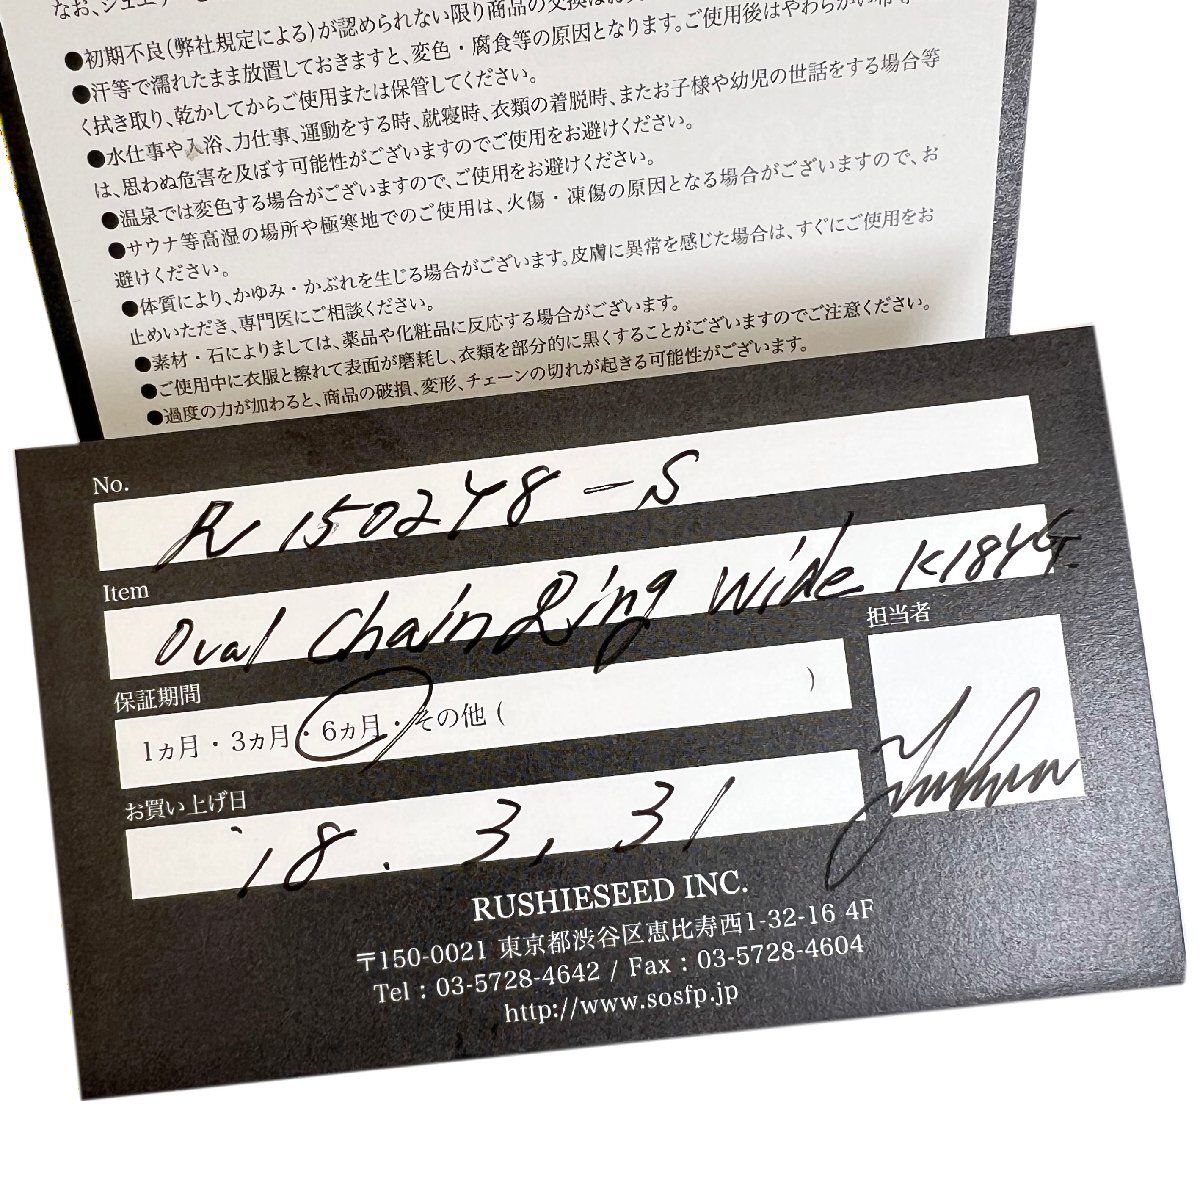 なお、ジュエリー
●初期不良(弊社規定による)が認められない限り商品の交換はお
●汗等で濡れたまま放置しておきますと、変色・腐食等の原因となります。ご使用後はやわらかい布等
く拭き取り、乾かしてからご使用または保管してください。
●水仕事や入浴、力仕事、運動をする時、就寝時、衣類の着脱時、またお子様や幼児の世話をする場合等
は、思わぬ危害を及ぼす可能性がございますのでご使用をお避けください。
●温泉では変色する場合がございますので、ご使用をお避けください。
●サウナ等高湿の場所や極寒地でのご使用は、火傷・凍傷の原因となる場合がございますので、お
避けください。
●体質により、かゆみ・かぶれを生じる場合がございます。皮膚に異常を感じた場合は、すぐにご使用をお
止めいただき、専門医にご相談ください。
●素材・石によりましては、薬品や化粧品に反応する場合がございます。
●ご使用中に衣服と擦れて表面が磨耗し、衣類を部分的に黒くすることがございますのでご注意ください。
●過度の力が加わると、商品の破損、変形、チェーンの切れが起きる可能性がございます。
No.
R 150248-S
Item
Oval Chain Ring Wide K18YG.
保証期間
1ヵ月・3ヵ月・6ヵ月・その他( )
担当者
お買い上げ日
'18. 3, 31
RUSHIESEED INC.
〒150-0021 東京都渋谷区恵比寿西1-32-16 4F
Tel : 03-5728-4642 / Fax : 03-5728-4604
http://www.sosfp.jp